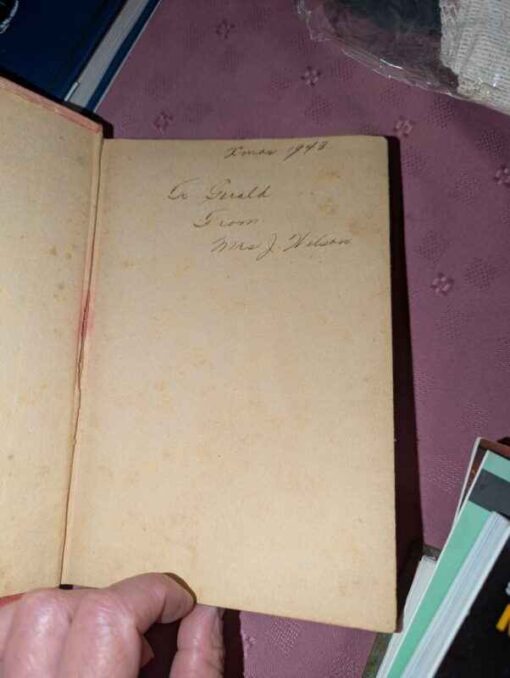 Xmas 1948
To Gerald
From
Mrs J. Wilson